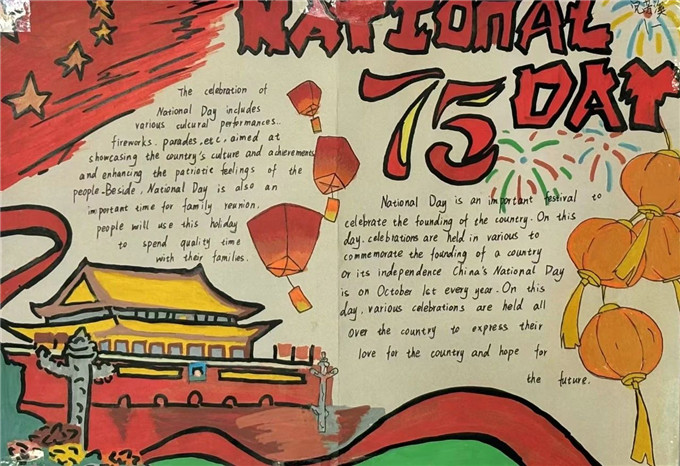 NATIONAL
75 DAY
The celebration of
National Day includes
various cultural performances..
fireworks. parades, etc. aimed at
showcasing the country's culture and achievements
and enhancing the patriotic feelings of the
people-Beside. National Day is also an
important time for family reunion.
people will use this holiday
to spend quality time
with their families.
National Day is an important festival to
celebrate the founding of the country. On this
day. celebrations are held in various to
commemorate the founding of a country
or its independence China's National Day
is on October 1st every year. On this
day. various celebrations are held all
over the country to express their
love for the country and hope for
the future.